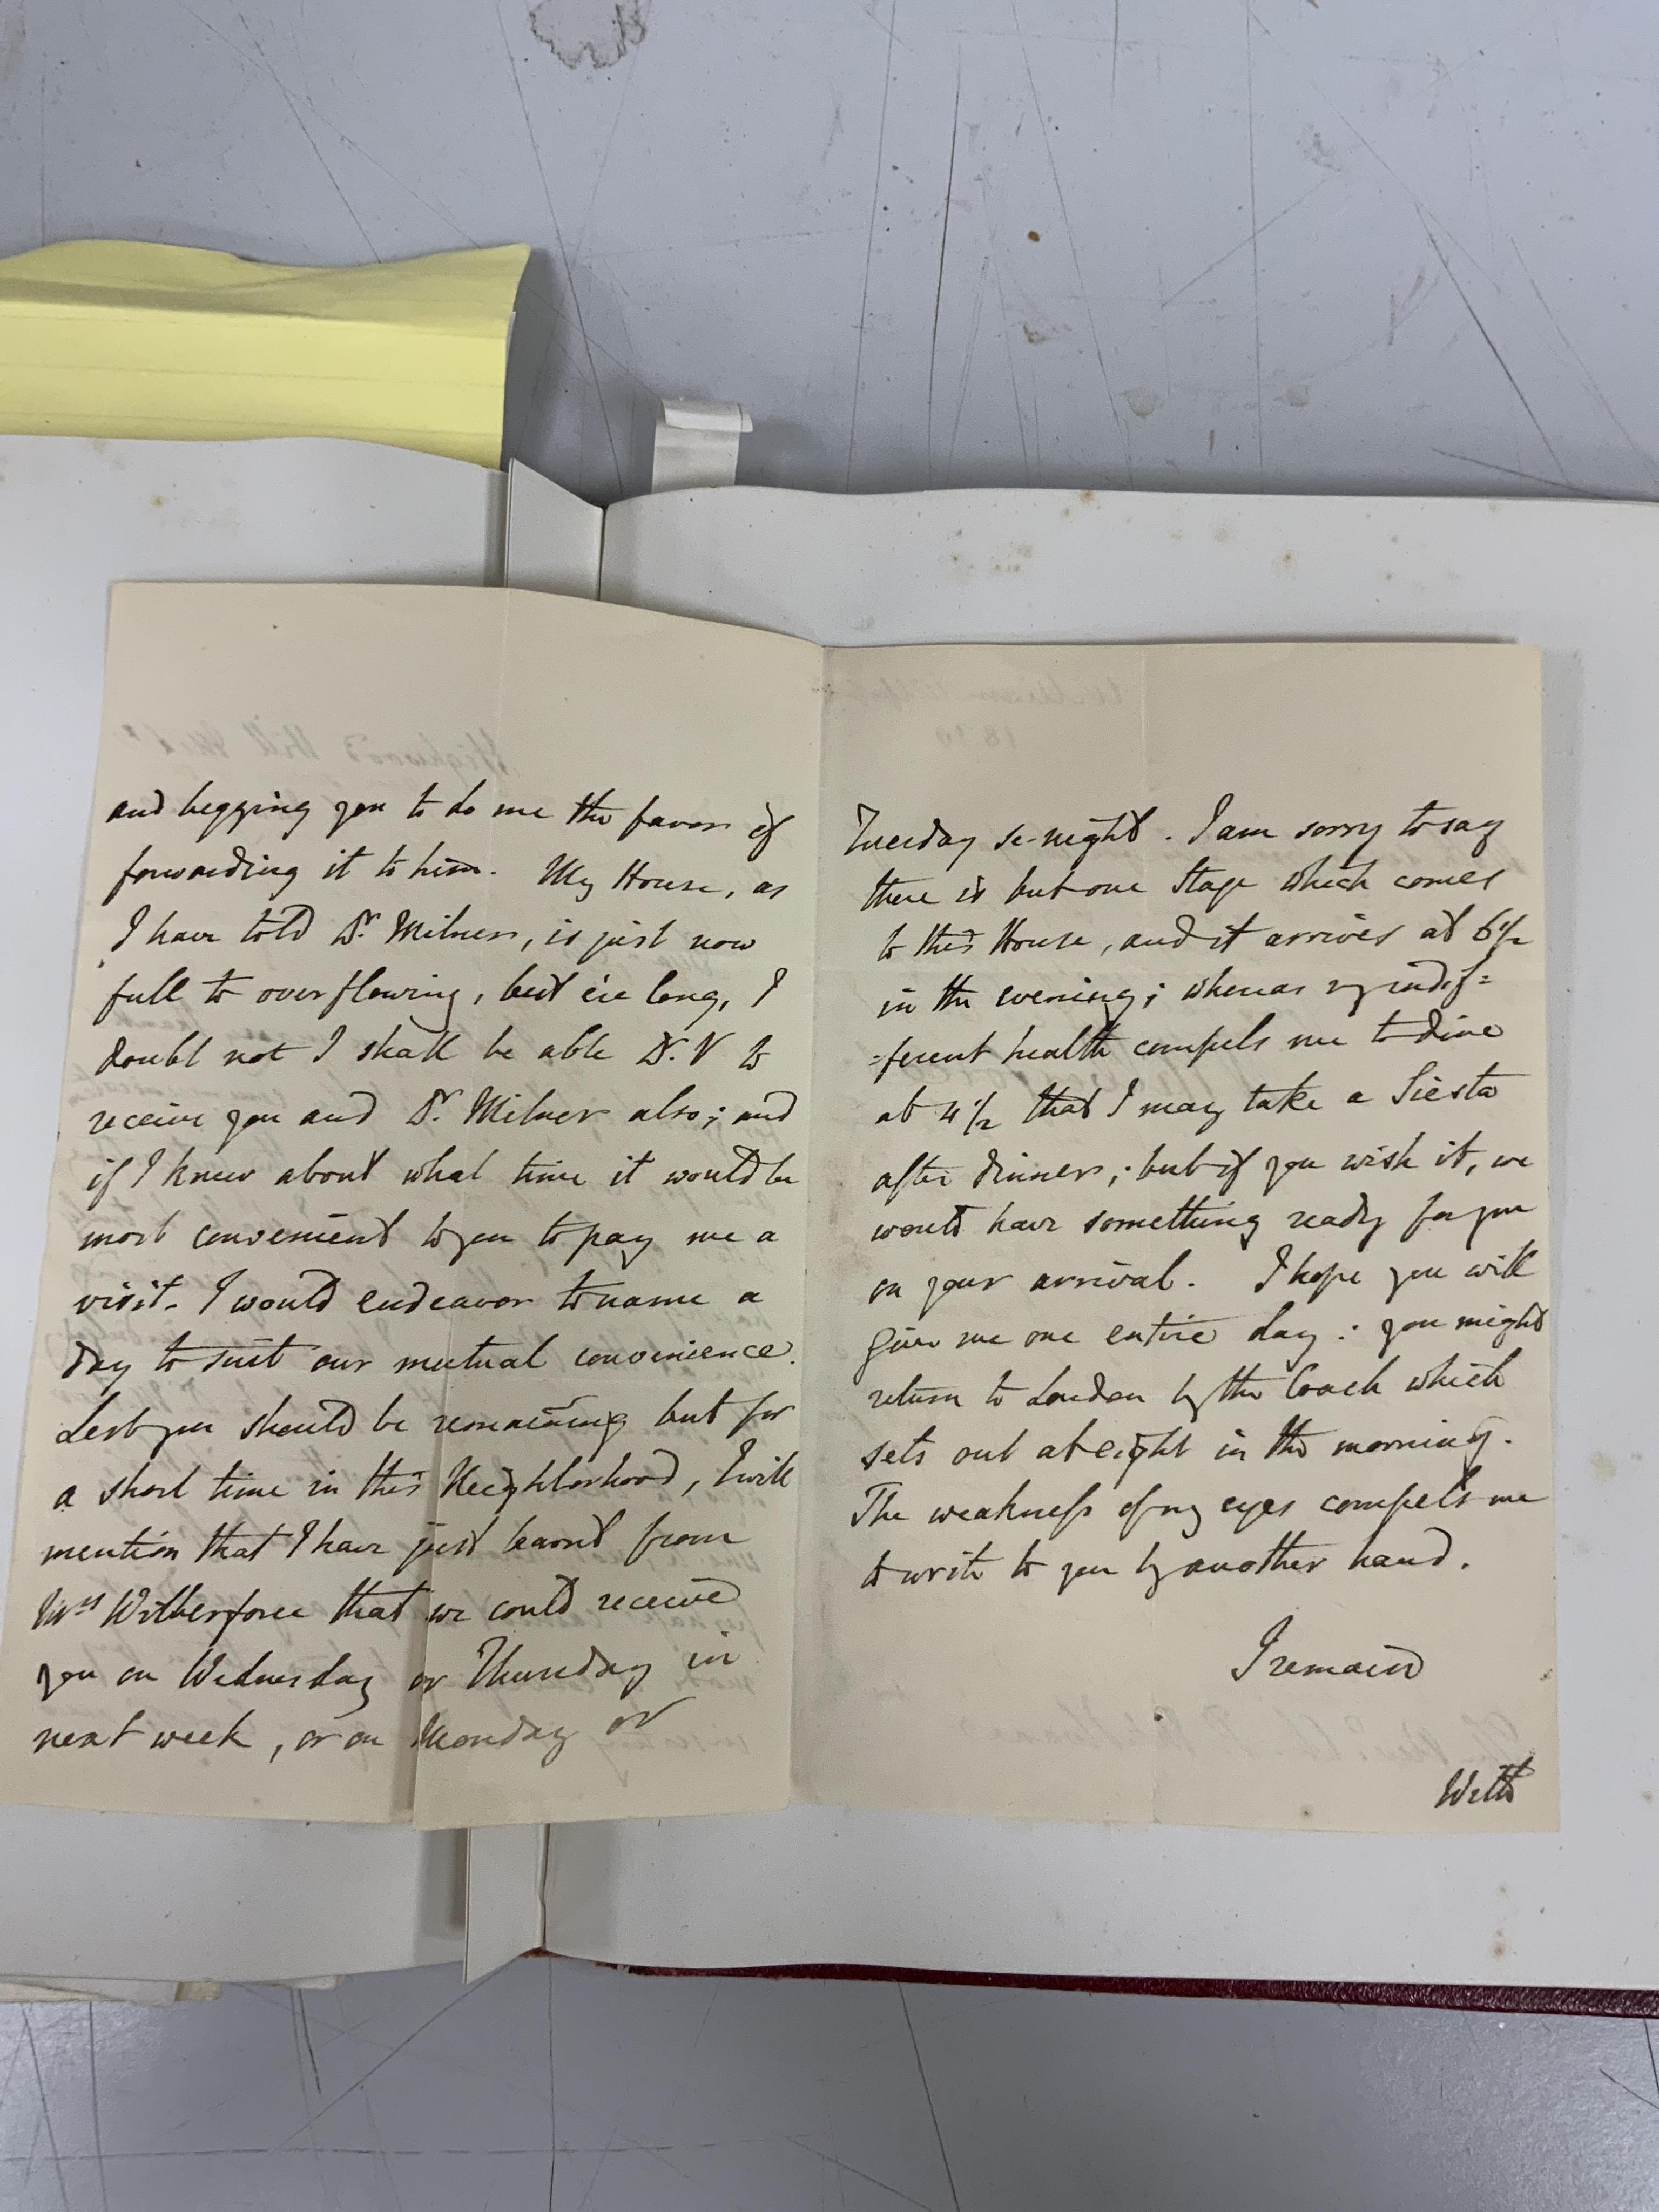 and begging you to do me the favor of
forwarding it to him. My House, as
I have told Dr. Milner, is just now
full to overflowing, but e're long, I
doubt not I shall be able D.V to
receive you and Dr. Milner also; and
if I knew about what time it would be
most convenient to you to pay me a
visit. I would endeavor to name a
day to suit our mutual convenience.
Lest you should be remaining but for
a short time in this Neighborhood, I will
mention that I have just learnt from
Mrs Wilberforce that we could receive
you on Wednesday or Thursday in
next week, or on Monday or
Tuesday se-night. I am sorry to say
there is but one Stage which comes
to this House, and it arrives at 6 1/2
in the evening; whereas my indif=
=ferent health compels me to dine
at 4 1/2 that I may take a Siesta
after dinner; but if you wish it, we
would have something ready for you
on your arrival. I hope you will
give me one entire day: you might
return to London by the Coach which
sets out at eight in the morning.
The weakness of my eyes compels me
to write to you by another hand.
I remain
With